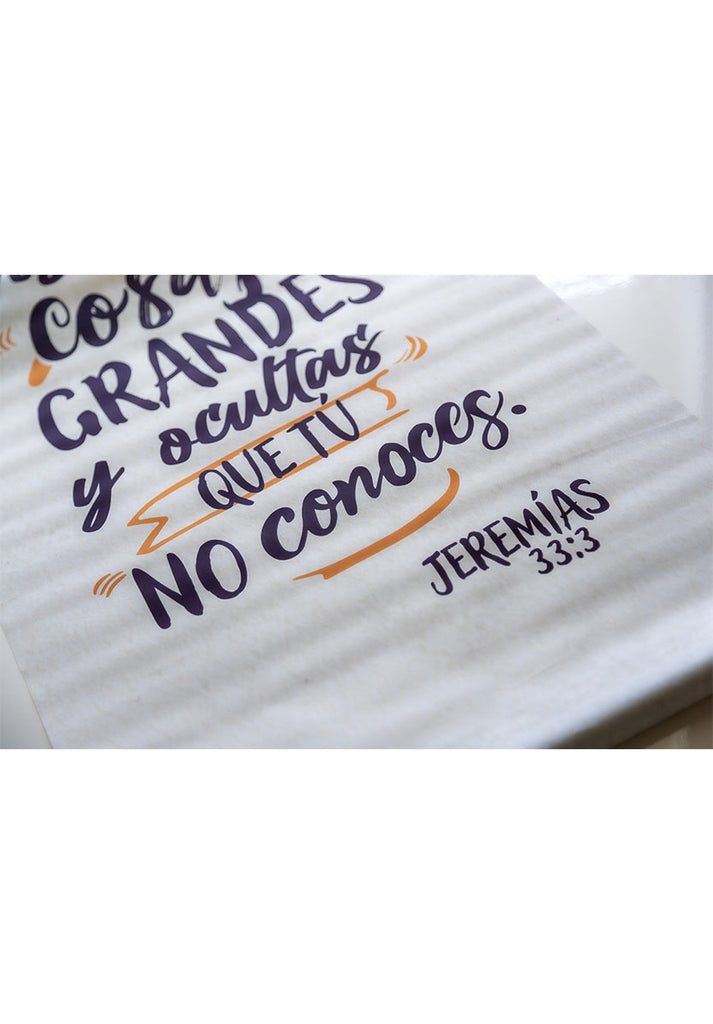 cosas
GRANDES
y ocultas
QUE TÚ
NO conoces.
JEREMÍAS
33:3